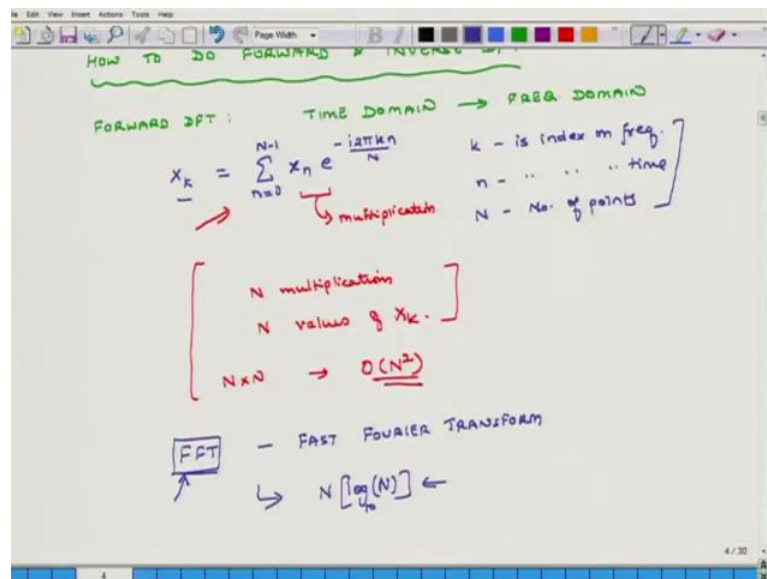 Edit View Insert Actions Tools Help
Page Width
HOW TO DO FORWARD & INVERSE
FORWARD DFT : TIME DOMAIN → FREQ. DOMAIN
X_k = \sum_{n=0}^{N-1} x_n e^{-\frac{i2πkn}{N}}
multiplication
k - is index on freq.
n - " " " time
N - No. of points
N multiplications
N values of X_k.
N×N → O(N²)
FFT - FAST FOURIER TRANSFORM
↳ N [log₁₀(N)] ←
4 / 30
4